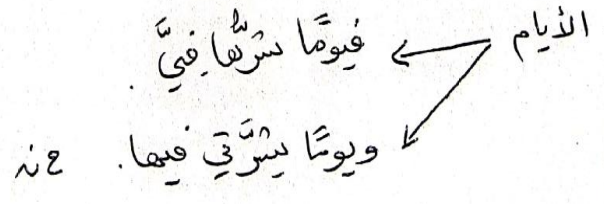 الأيام
فيومًا بشرُّها فيَّ.
ويومًا بشرَّتي فيها.